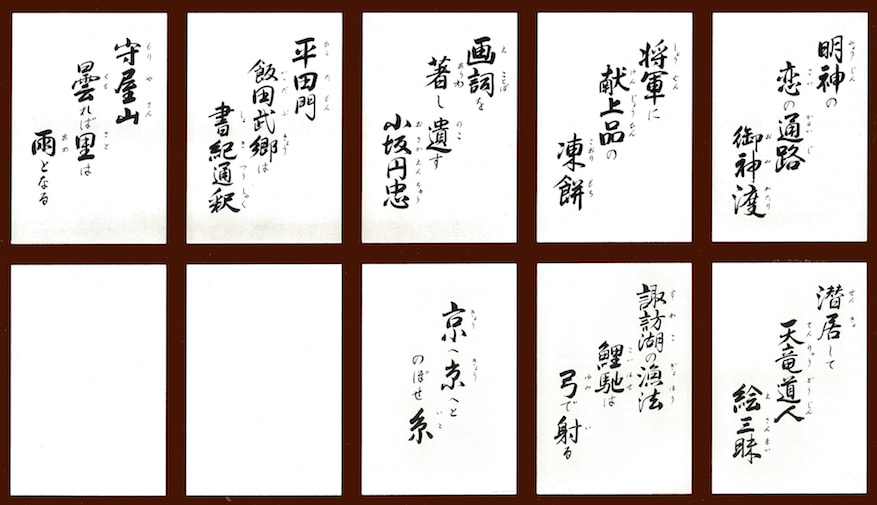 明神の
恋の通路
御神渡
将軍に
献上品の
凍餅
画詞を
著し遺す
小坂円忠
平田門
飯田武郷は
書紀通釈
守屋山
曇れば里は
雨となる
潜居して
天竜道人
絵三昧
諏訪湖の漁法
鯉馳は
弓で射る
京へ京へと
のぼせ糸